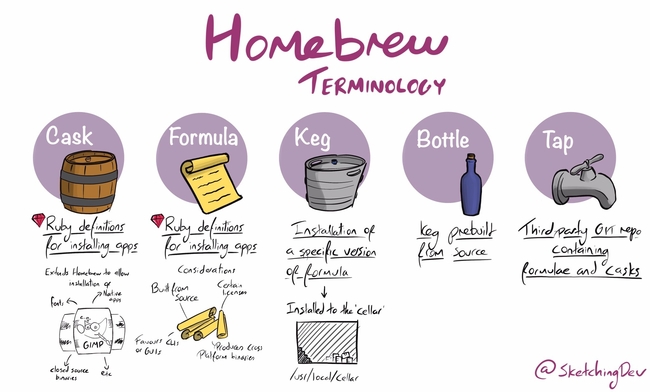 Homebrew
Terminology
Cask
Ruby definitions
for installing apps
Extends Homebrew to allow
installation of
Native
apps
Fonts
GIMP
closed source
binaries
etc
Formula
Ruby definitions
for installing apps
Considerations
Built from
source
Certain
licenses
Favours CLIs
or GUIs
Produces Cross
Platform binaries
Keg
Installation of
a specific version
of formula
Installed to the 'cellar'
/usr/local/cellar
Bottle
Keg prebuilt
from source
Tap
Third party Git repo
containing
formulae and casks
@SketchingDev